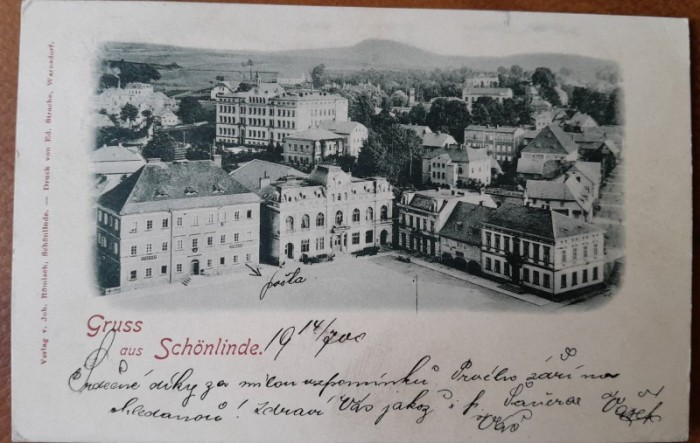 Verlag v. Joh. Römisch, Schönlinde. — Druck von Ed. Strache, Warnsdorf.
pošta
Gruss
aus Schönlinde.
19 14/7 00
Srdečné díky za milou vzpomínku! Pročho září na
hledanou! Zdraví Vás jakož i p.
Váš